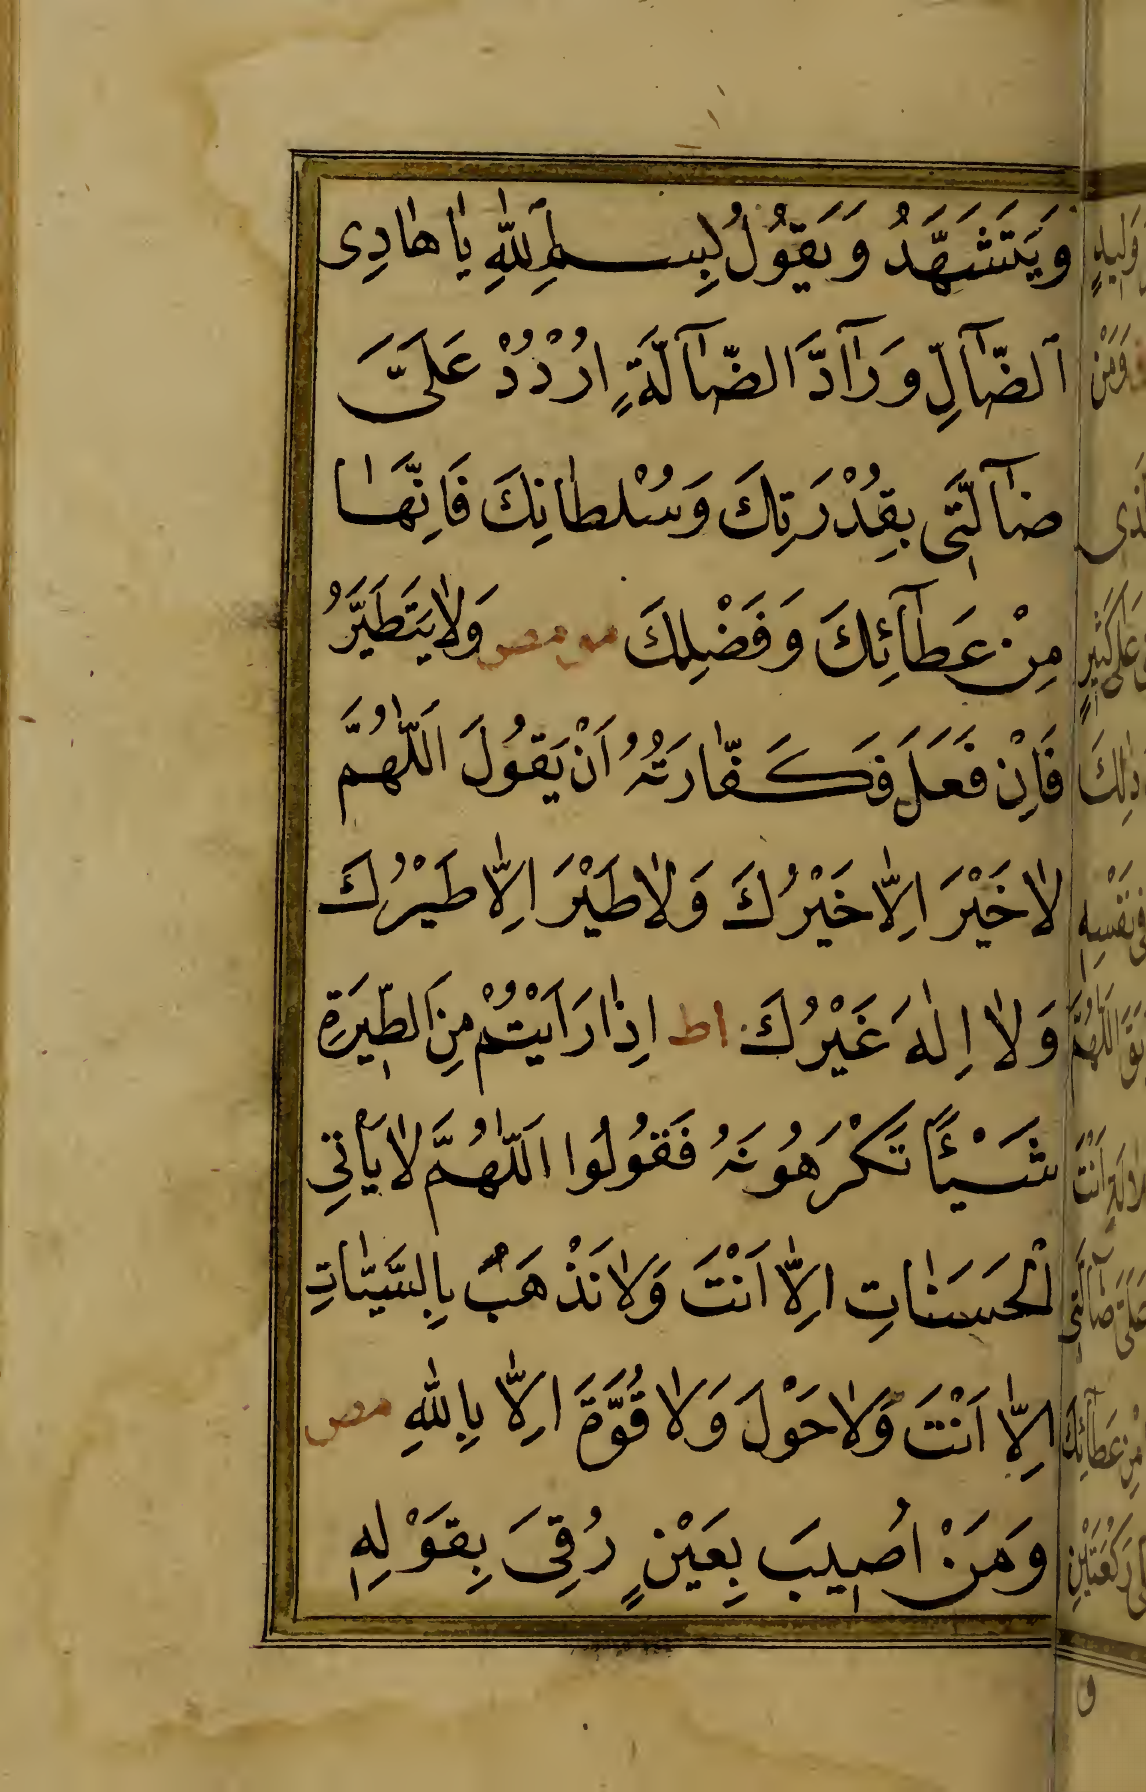 وَيَتَشَهَّدُ وَيَقُولُ بِسْمِ اللّٰهِ يَا هَادِى
الضَّآلِّ وَرَآدَّ الضَّآلَّةِ ارْدُدْ عَلَىَّ
ضَآلَّتِى بِقُدْرَتِكَ وَسُلْطَانِكَ فَاِنَّهَا
مِنْ عَطَآئِكَ وَفَضْلِكَ مو مص وَلَا يَتَطَيَّرُ
فَاِنْ فَعَلَ فَكَفَّارَتُهُ اَنْ يَقُولَ اَللّٰهُمَّ
لَا خَيْرَ اِلَّا خَيْرُكَ وَلَا طَيْرَ اِلَّا طَيْرُكَ
وَلَا اِلٰهَ غَيْرُكَ اط اِذَا رَاَيْتُمْ مِنَ الطِّيَرَةِ
شَيْئًا تَكْرَهُونَهُ فَقُولُوا اَللّٰهُمَّ لَا يَاْتِى
الْحَسَنَاتِ اِلَّا اَنْتَ وَلَا نَذْهَبُ بِالسَّيِّاٰتِ
اِلَّا اَنْتَ وَلَا حَوْلَ وَلَا قُوَّةَ اِلَّا بِاللّٰهِ مص
وَمَنْ اُصِيبَ بِعَيْنٍ رُقِىَ بِقَوْلِهِ